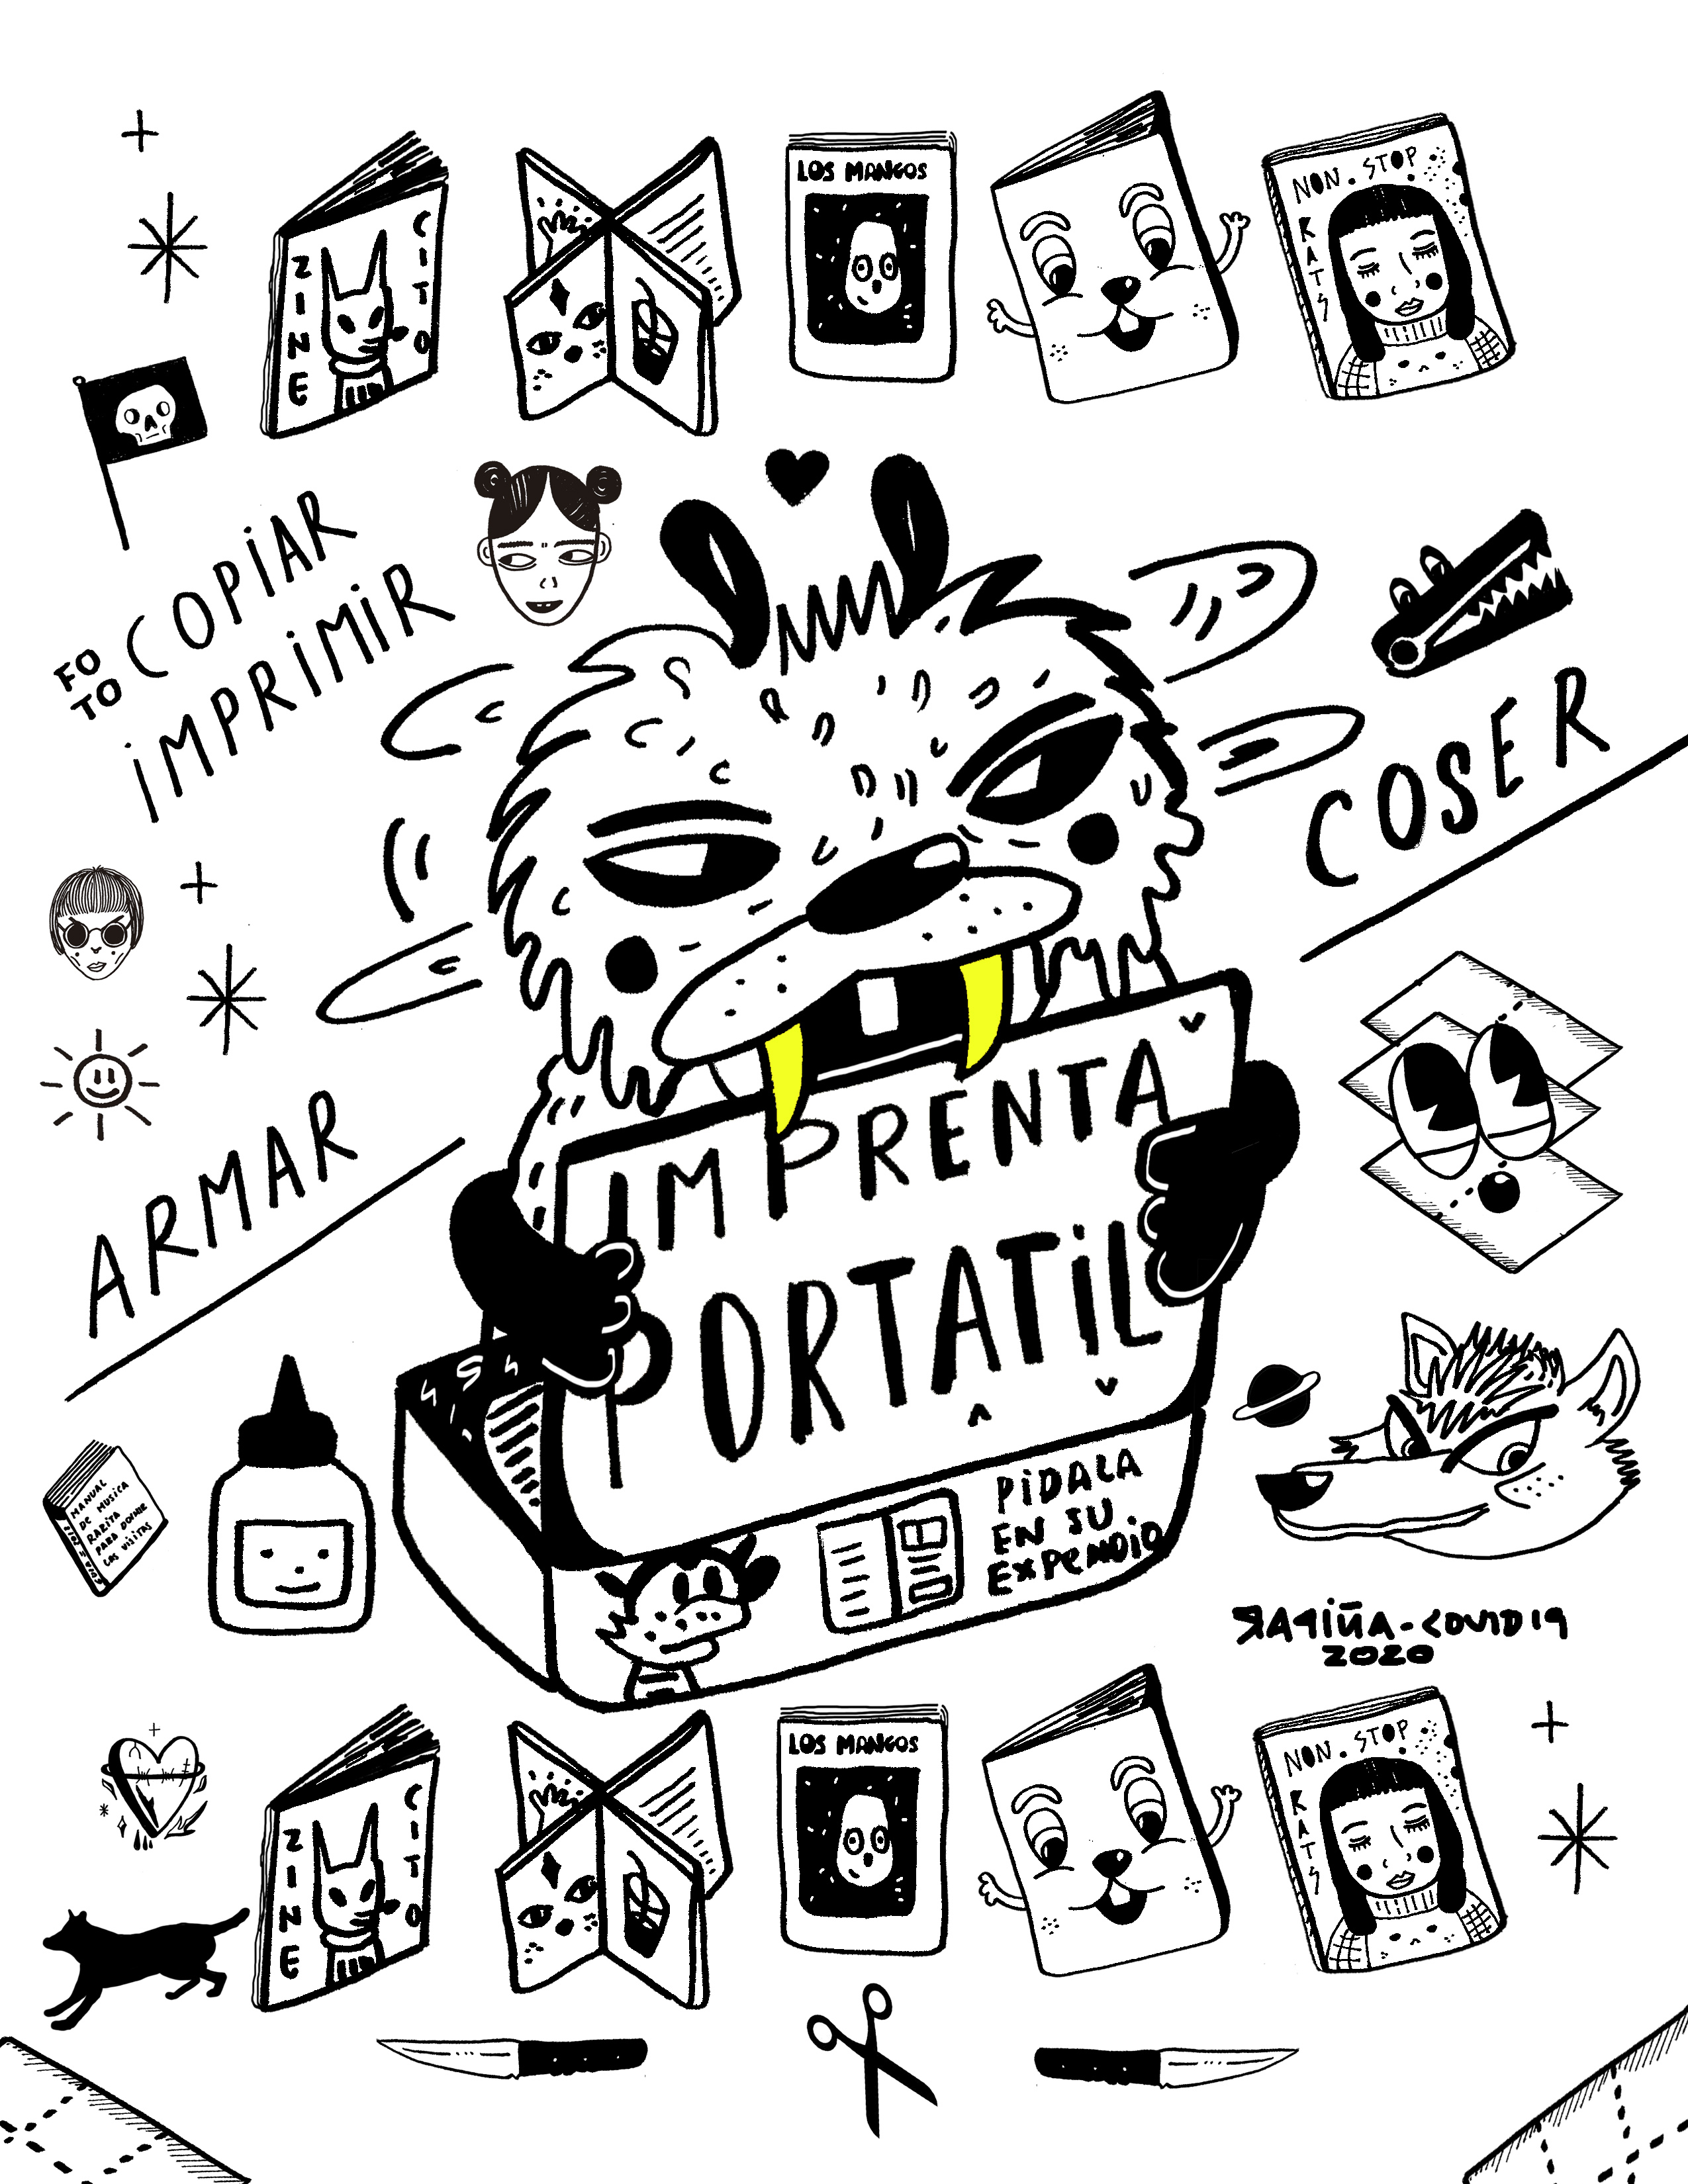 ZINE CITO
LOS MANGOS
NON. STOP
KATS
FO
TO COPIAR
IMPRIMIR
COSER
ARMAR
IMPRENTA
PORTATIL
PIDALA
EN SU
EXPENDIO
MANUAL
DE MUSICA
RARITA
PARA DONDE
LAS VISITAS
RAPIÑA-COVID19
2020
ZINE CITO
LOS MANGOS
NON. STOP
KATS